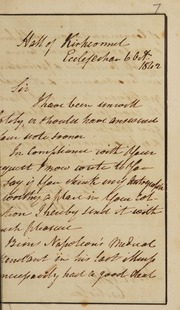 7
Hall of Kirkconnel
Ecclefechan 6 Octr
1842
Sir
I have been unwell
lately or should have answered
your note sooner
In compliance with your
request I now write to you
say if you think my Autograph
worthy a place in your
I hereby send it with
much pleasure
Being Napoleon's Medical
attendant in his last illness
necessarily had a good deal